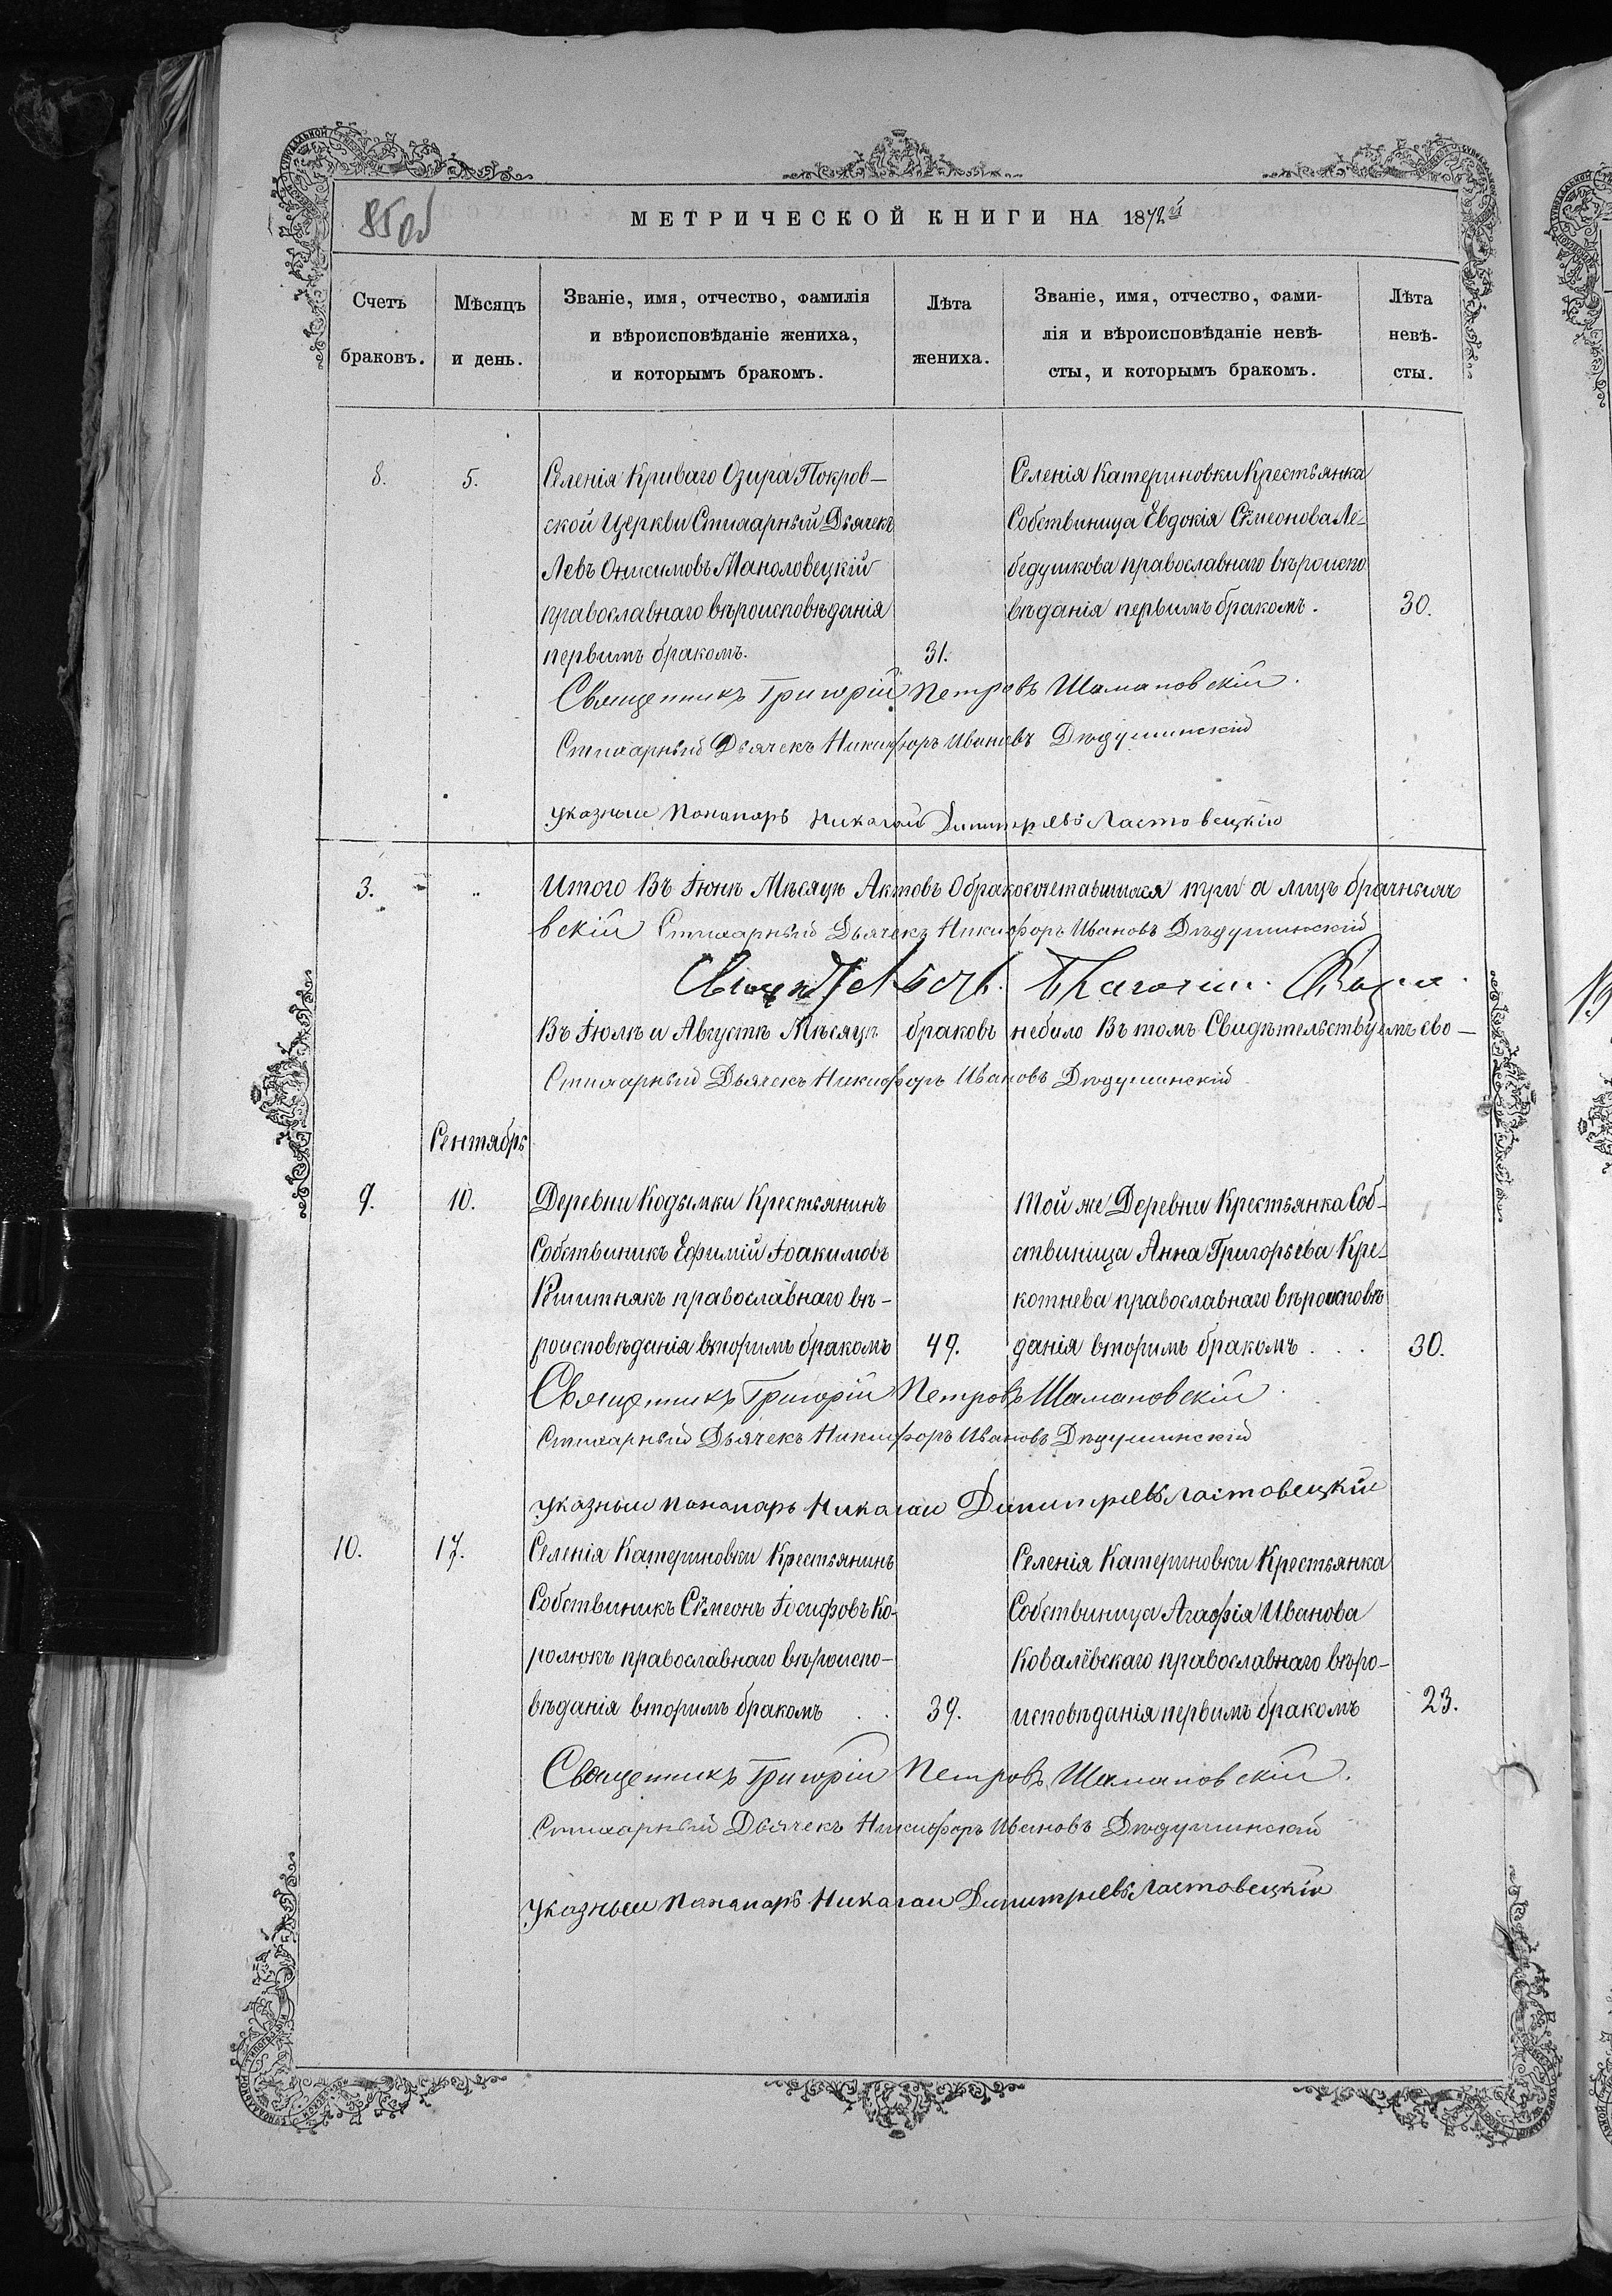 85об
МЕТРИЧЕСКОЙ КНИГИ НА 1872й
Счетъ браковъ.
Мѣсяцъ и день.
Званіе, имя, отчество, фамилія
и вѣроисповѣданіе жениха,
и которымъ бракомъ.
Лѣта жениха.
Званіе, имя, отчество, фами-
лія и вѣроисповѣданіе невѣ-
сты, и которымъ бракомъ.
Лѣта невѣ-
сты.
8.
5.
Селенія Криваго Озира Покров-
ской Церкви Стихарный Дьячекъ
Левъ Онисимовъ Маноловецкій
православнаго вѣроисповѣданія
первымъ бракомъ.
31.
Селенія Катериновки Крестьянка
Собствиница Евдокія Сѵмеонова Ле-
бедушкова православнаго вѣроиспо
вѣданія первымъ бракомъ.
30.
Священникъ Григорій Петровъ Шамановскій.
Стихарный Дьячекъ Никифоръ Ивановъ Дѣдушинскій
Указный Пономарь Николай Димитріевъ Ластовецкій
3.
Итого Въ Іюнѣ Мѣсяцѣ Актовъ О бракосочетавшихся три а лицъ брачныхъ
вскій Стихарный Дьячекъ Никифоръ Ивановъ Дѣдушинскій
Въ Іюлѣ и Августѣ Мѣсяцѣ браковъ небыло Въ томъ Свидѣтельствуемъ сво-
Стихарный Дьячекъ Никифоръ Ивановъ Дѣдушинскій
Сентябрь
9.
10.
Деревни Кодымки Крестьянинъ
Собствиникъ Ефимій Іоакимовъ
православнаго вѣ-
роисповѣданія вторымъ бракомъ
49.
Той же Деревни Крестьянка Соб-
ствиница Анна Григорьева Кре-
котнева православнаго вѣроисповѣ
данія вторимъ бракомъ . . .
30.
Священникъ Григорій Петровъ Шамановскій
Стихарный Дьячекъ Никифоръ Ивановъ Дѣдушинскій
Указный Пономарь Николай Димитріевъ Ластовецкій
10.
17.
Селенія Катериновки Крестьянинъ
Собствиникъ Сѵмеонъ Іосифовъ Ко-
ролюкъ православнаго вѣроиспо-
вѣданія вторимъ бракомъ . .
39.
Селенія Катериновки Крестьянка
Собствиница Агафія Иванова
Ковалёвскаго православнаго вѣро-
исповѣданія первымъ бракомъ
23.
Священникъ Григорій Петровъ Шамановскій.
Стихарный Дьячекъ Никифоръ Ивановъ Дѣдушинскій
Указный Пономарь Николай Димитріевъ Ластовецкій